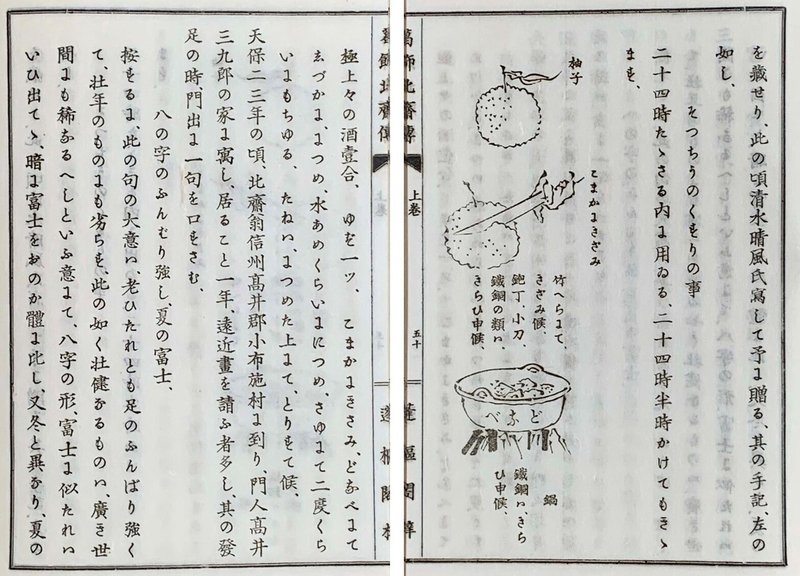 を藏せり、此の頃清水晴風氏寫して予に贈る、其の手記、左の
如し、
そつちうのくすりの事
二十四時たゝざる内に用ゐる、二十四時半時かけてもきゝ
ます、
柚子
こまかにきざみ
竹へらにて、
きざみ候、
鉋丁、小刀、
鐵銅の類ハ、
きらひ申候、
どなべ
鍋
鐵銅ハ、きら
ひ申候、
葛飾北齋傳 上卷 五十 蓬樞閣梓
極上々の酒壹合、 ゆを一ツ、 こまかにきさみ、どなべにて
しづかに、につめ、水あめくらいにつめ、さゆにて二度くら
いにもちゆる、 たねハ、につめた上にて、とりすて候、
天保二三年の頃、北齋翁信州高井郡小布施村に到り、門人高井
三九郎の家に寓し、居ること一年、遠近畫を請ふ者多し、其の發
足の時、門出に一句を口ずさむ、
八の字のふんばり強し、夏の富士、
按ずるに、此の句の大意ハ老ひたれとも足のふんばり強く
て、壯年のものにも劣らず、此の如く壯健なるものハ、廣き世
間にも稀なるへしといふ意にて、八字の形、富士に似たれハ
いひ出てゝ、暗に富士をおのか體に比し、又冬と異なり、夏の